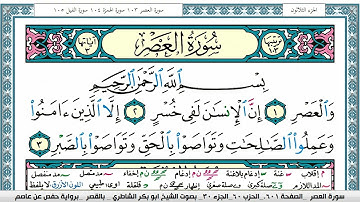 الجزء الثلاثون
سورة العصر ١٠٣ سورة الهمزة ١٠٤ سورة الفيل ١٠٥
سُورَةُ العَصْرِ
بِسْمِ ٱللَّهِ ٱلرَّحْمَٰنِ ٱلرَّحِيمِ
وَٱلْعَصْرِ ١ إِنَّ ٱلْإِنسَٰنَ لَفِى خُسْرٍ ٢ إِلَّا ٱلَّذِينَ ءَامَنُوا۟
وَعَمِلُوا۟ ٱلصَّٰلِحَٰتِ وَتَوَاصَوْا۟ بِٱلْحَقِّ وَتَوَاصَوْا۟ بِٱلصَّبْرِ ٣
سورة العصر .. الصفحة ٦٠١ .. الحزب ٦٠ .. الجزء ٣٠ .. بصوت الشيخ ابو بكر الشاطري .. بالقصر .. برواية حفص عن عاصم